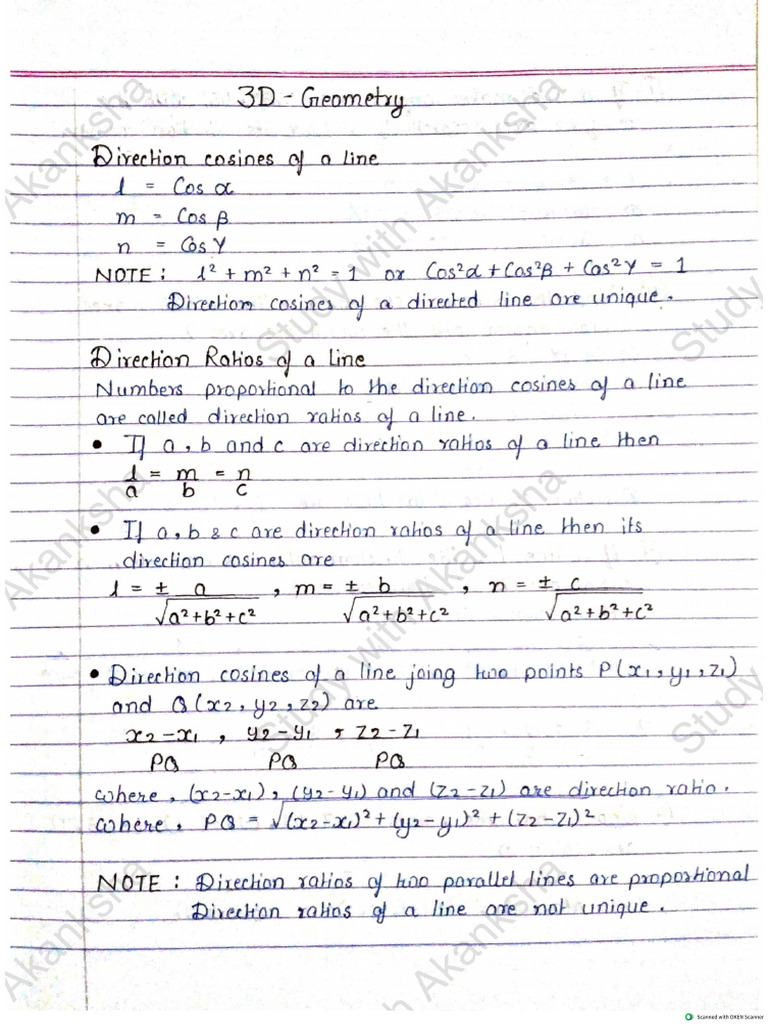 3D - Geometry
Direction cosines of a line
l = Cos α
m = Cos β
n = Cos γ
NOTE : l² + m² + n² = 1 or Cos²α + Cos²β + Cos²γ = 1
Direction cosines of a directed line are unique.
Direction Ratios of a line
Numbers proportional to the direction cosines of a line
are called direction ratios of a line.
• If a, b and c are direction ratios of a line then
l/a = m/b = n/c
• If a, b & c are direction ratios of a line then its
direction cosines are
l = ± a/√a²+b²+c² , m = ± b/√a²+b²+c² , n = ± c/√a²+b²+c²
• Direction cosines of a line joing two points P(x₁, y₁, z₁)
and Q(x₂, y₂, z₂) are
x₂-x₁/PQ , y₂-y₁/PQ , z₂-z₁/PQ
where, (x₂-x₁), (y₂-y₁) and (z₂-z₁) are direction ratio.
where, PQ = √(x₂-x₁)² + (y₂-y₁)² + (z₂-z₁)²
NOTE : Direction ratios of two parallel lines are proportional
Direction ratios of a line are not unique.
Study with Akanksha
Scanned with OKEN Scanner